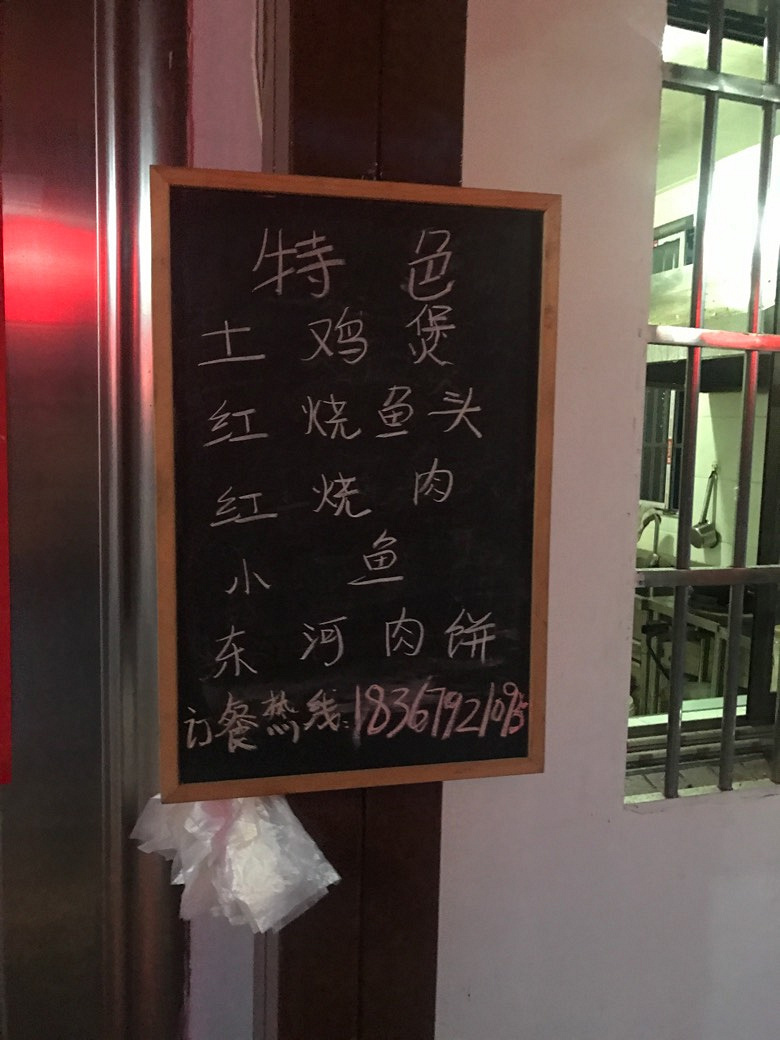 特色
土鸡煲
红烧鱼头
红烧肉
小鱼
东河肉饼
订餐热线: